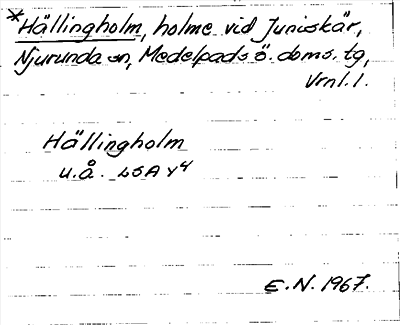 *Hällingholm, holme vid Juniskär,
Njurunda sn, Medelpads ö. doms. tg,
Vrnl. l.
Hällingholm
u.å. LSA Y4
E.N. 1967.